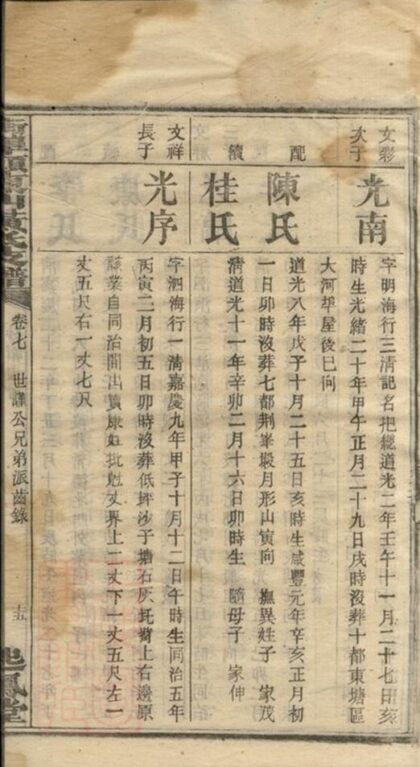 文彩
次子
光南
字明海行三清記名把總道光二年壬午十一月二十七日亥
時生光緒二十年甲午正月二十九日戌時没葬十都東塘區
大河胡屋後巳向
配
陳氏
道光八年戊子十月二十五日亥時生咸豐元年辛亥正月初
一日卯時沒葬七都荆峯塅月形山寅向 撫異姓子 家茂
續
桂氏
清道光十一年辛卯二月十六日卯時生 隨母子 家伸
文祥
長子
光序
字泗海行一清嘉慶九年甲子十月十二日午時生同治五年
丙寅二月初五日卯時沒葬低坪沙子塘石灰托背上右邊原
業自同治間出賣康姓批勉丈界上二丈下一丈五尺左一
丈五尺右一丈七尺
黃氏支譜
卷七
世謹公兄弟派齒錄
十五
鳳堂